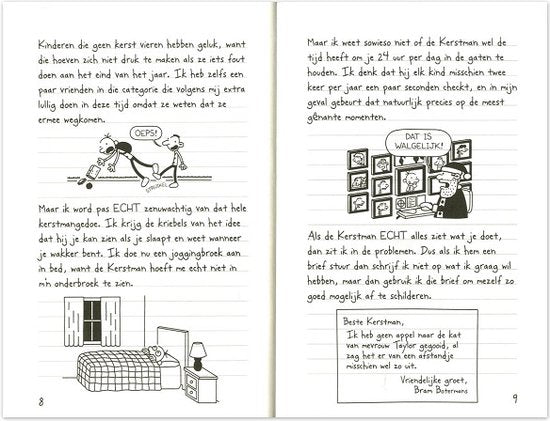 Kinderen die geen kerst vieren hebben geluk, want
die hoeven zich niet druk te maken als ze iets fout
doen aan het eind van het jaar. Ik heb zelfs een
paar vrienden in die categorie die volgens mij extra
lullig doen in deze tijd omdat ze weten dat ze
ermee wegkomen.
OEPS!
STRUIKEL
Maar ik word pas ECHT zenuwachtig van dat hele
kerstmangedoe. Ik krijg de kriebels van het idee
dat hij je kan zien als je slaapt en weet wanneer
je wakker bent. Ik doe nu een joggingbroek aan
in bed, want de Kerstman hoeft me echt niet in
m'n onderbroek te zien.
8
Maar ik weet sowieso niet of de Kerstman wel de
tijd heeft om je 24 uur per dag in de gaten te
houden. Ik denk dat hij elk kind misschien twee
keer per jaar een paar seconden checkt, en in mijn
geval gebeurt dat natuurlijk precies op de meest
gênante momenten.
DAT IS
WALGELIJK!
Als de Kerstman ECHT alles ziet wat je doet,
dan zit ik in de problemen. Dus als ik hem een
brief stuur dan schrijf ik niet op wat ik graag wil
hebben, maar dan gebruik ik die brief om mezelf zo
goed mogelijk af te schilderen.
Beste Kerstman,
Ik heb geen appel naar de kat
van mevrouw Taylor gegooid, al
zag het er van een afstandje
misschien wel zo uit.
Vriendelijke groet,
Bram Botermans
9